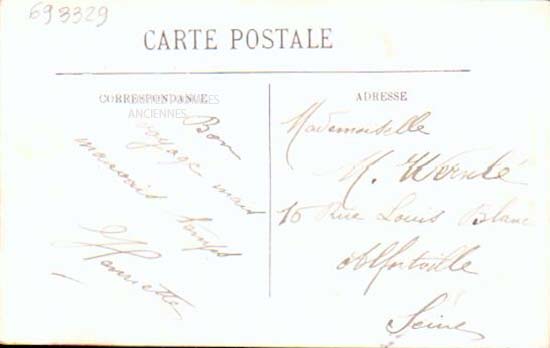 693329
CARTE POSTALE
CORRESPONDANCE
ANCIENNES
ADRESSE
Bon
voyage mais
mauvais temps
Henriette
Mademoiselle
K. Wernlé
16 Rue Louis Blanc
Alfortville
Seine